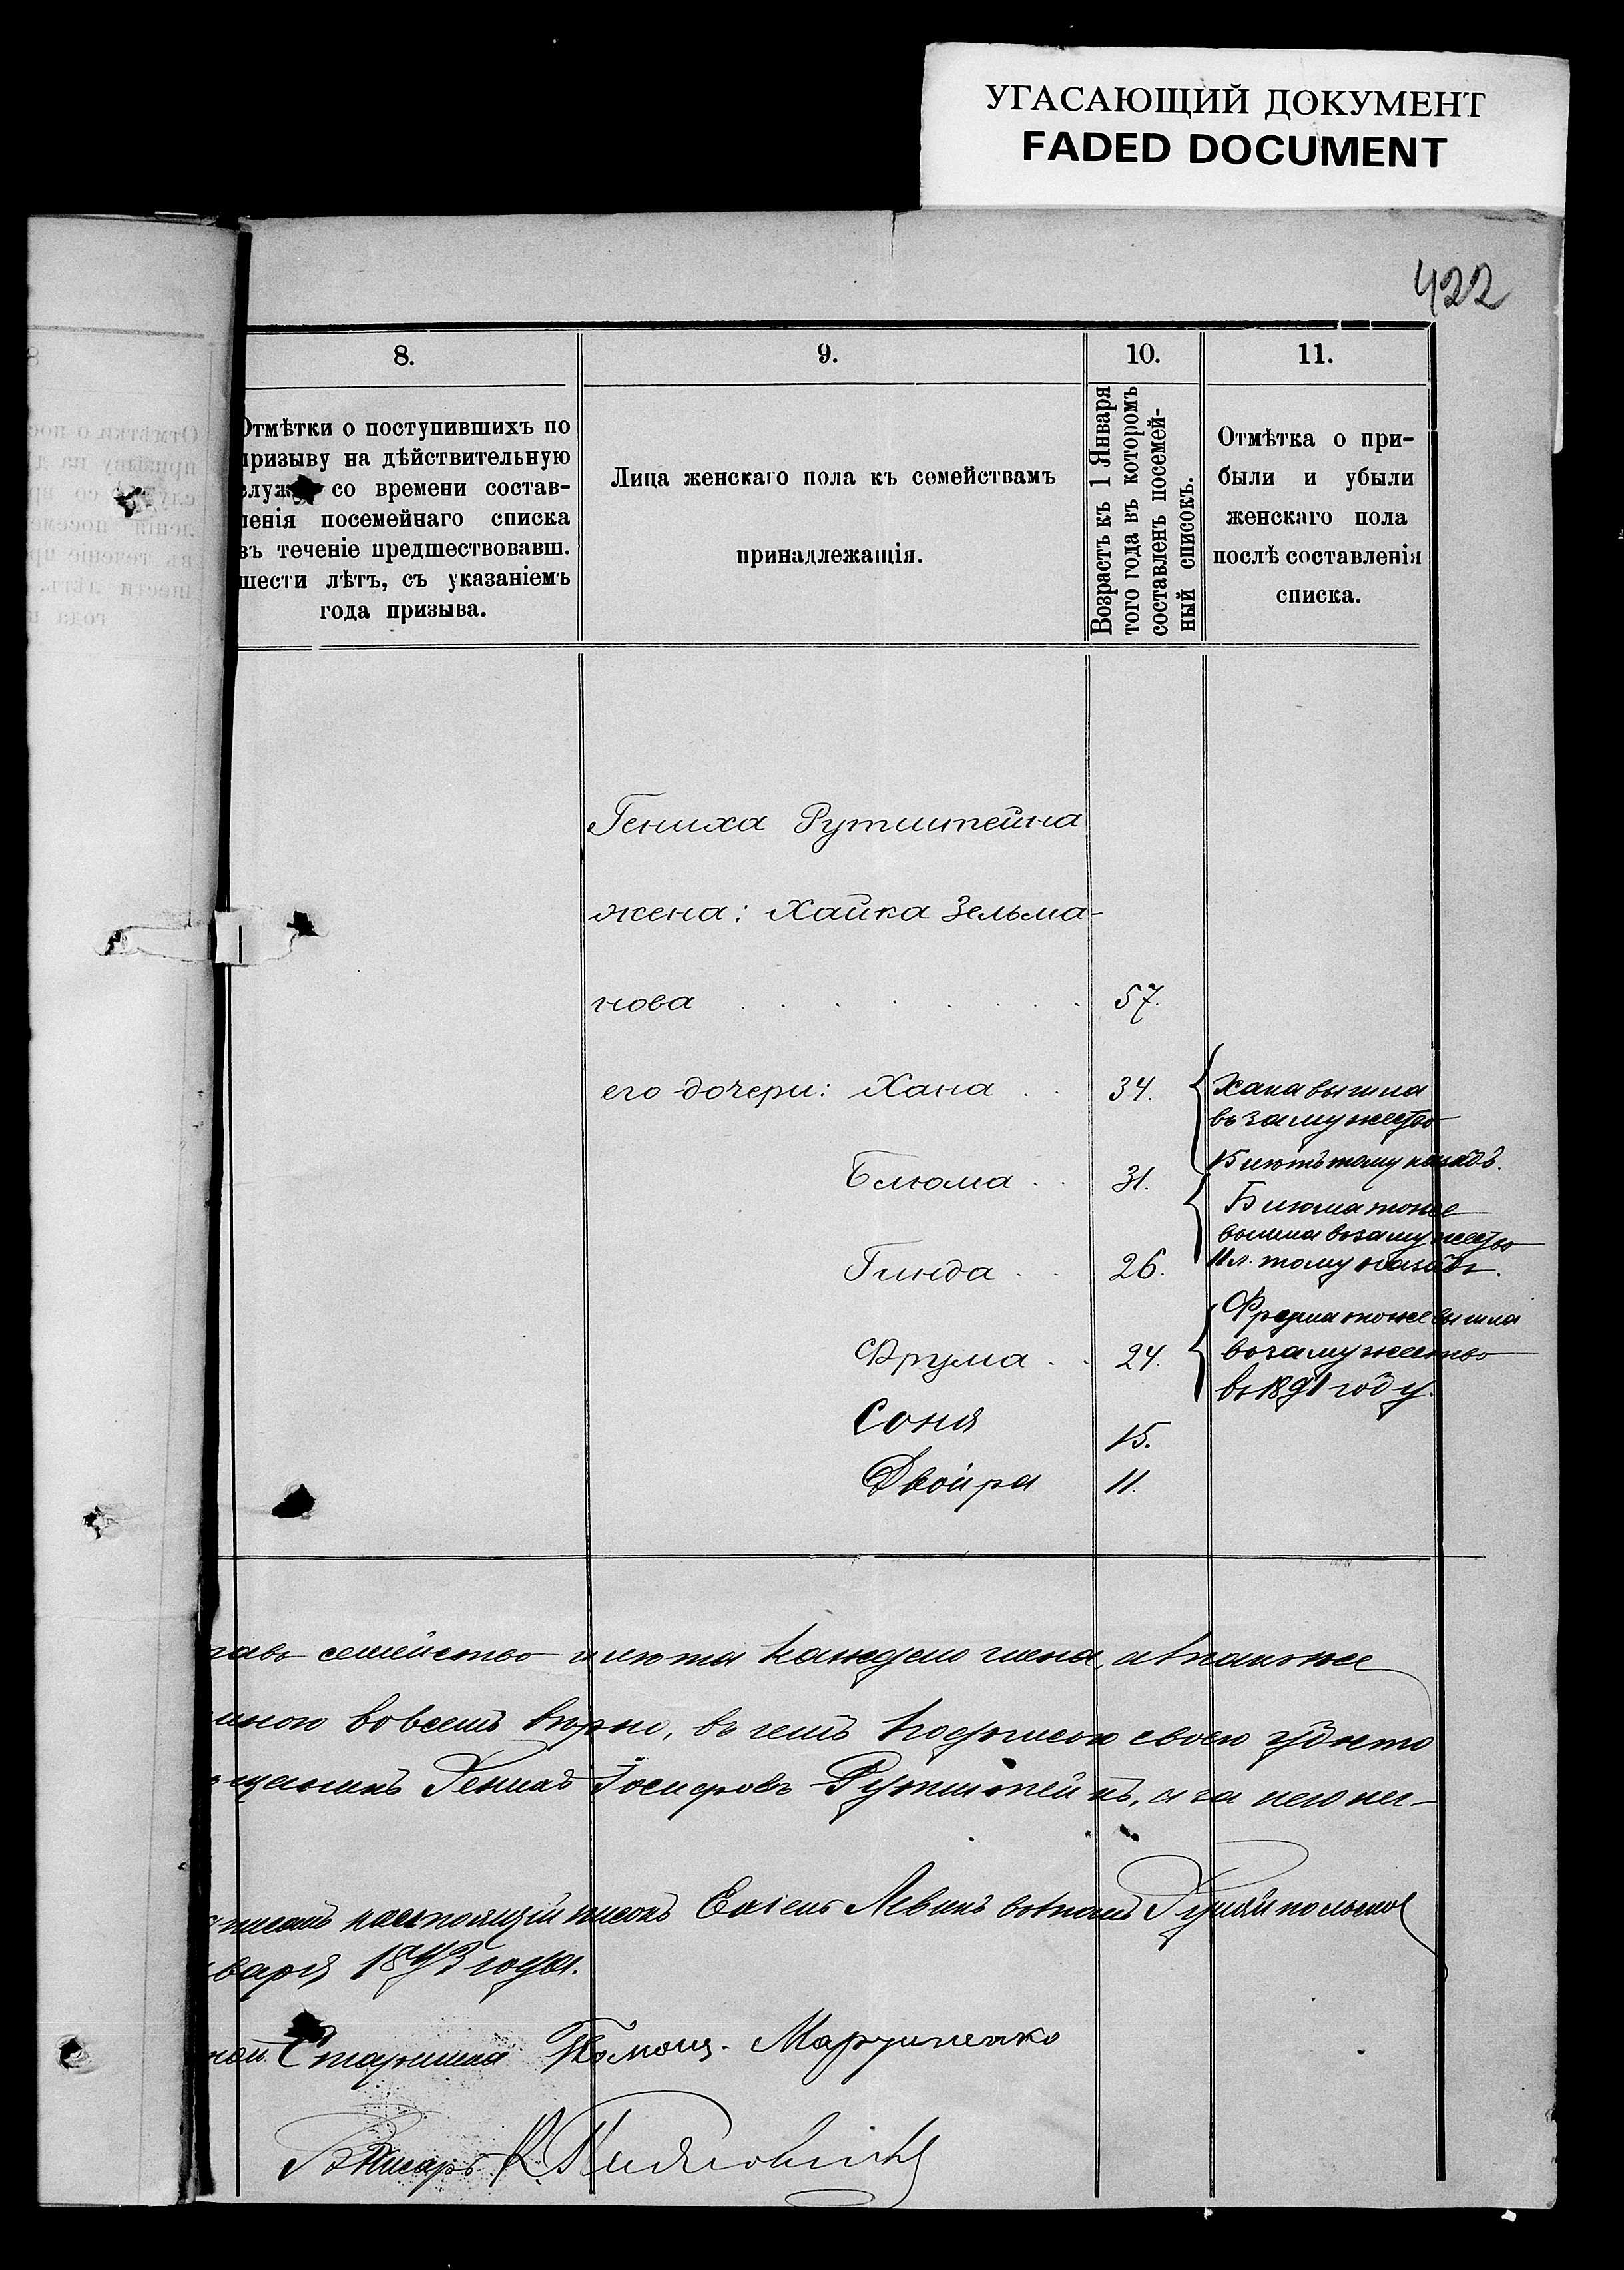 УГАСАЮЩИЙ ДОКУМЕНТ
FADED DOCUMENT
422
8.
9.
10.
11.
Отмѣтки о поступившихъ по
призыву на дѣйствительную
службу со времени состав-
ленія посемейнаго списка
въ теченіе предшествовавш.
шести лѣтъ, съ указаніемъ
года призыва.
Лица женскаго пола къ семействамъ
принадлежащія.
Возрастъ къ 1 Января
того года въ которомъ
составленъ посемей-
ный списокъ.
Отмѣтка о при-
были и убыли
женскаго пола
послѣ составленія
списка.
Гениха Рутштейна
жена: Хайка Зельма-
нова 57.
его дочери: Хана 34.
Хана вышла
въ замужество
15 лѣтъ тому назадъ.
Блюма 31.
Блюма тоже
вышла въ замужество
11 л. тому назадъ.
Гинда 26.
Фрума 24.
Фрума тоже вышла
въ замужество
въ 1891 году.
Соня 15.
Двойра 11.
семейство и лѣта каждаго члена, а также
мною во всемъ вѣрно, въ чемъ подписью своею
Гениха Іосифовъ Рутштейнъ, а за него не-
Левинъ
варя 1893 года.
Старшина Помощ. Марущенко
Писарь